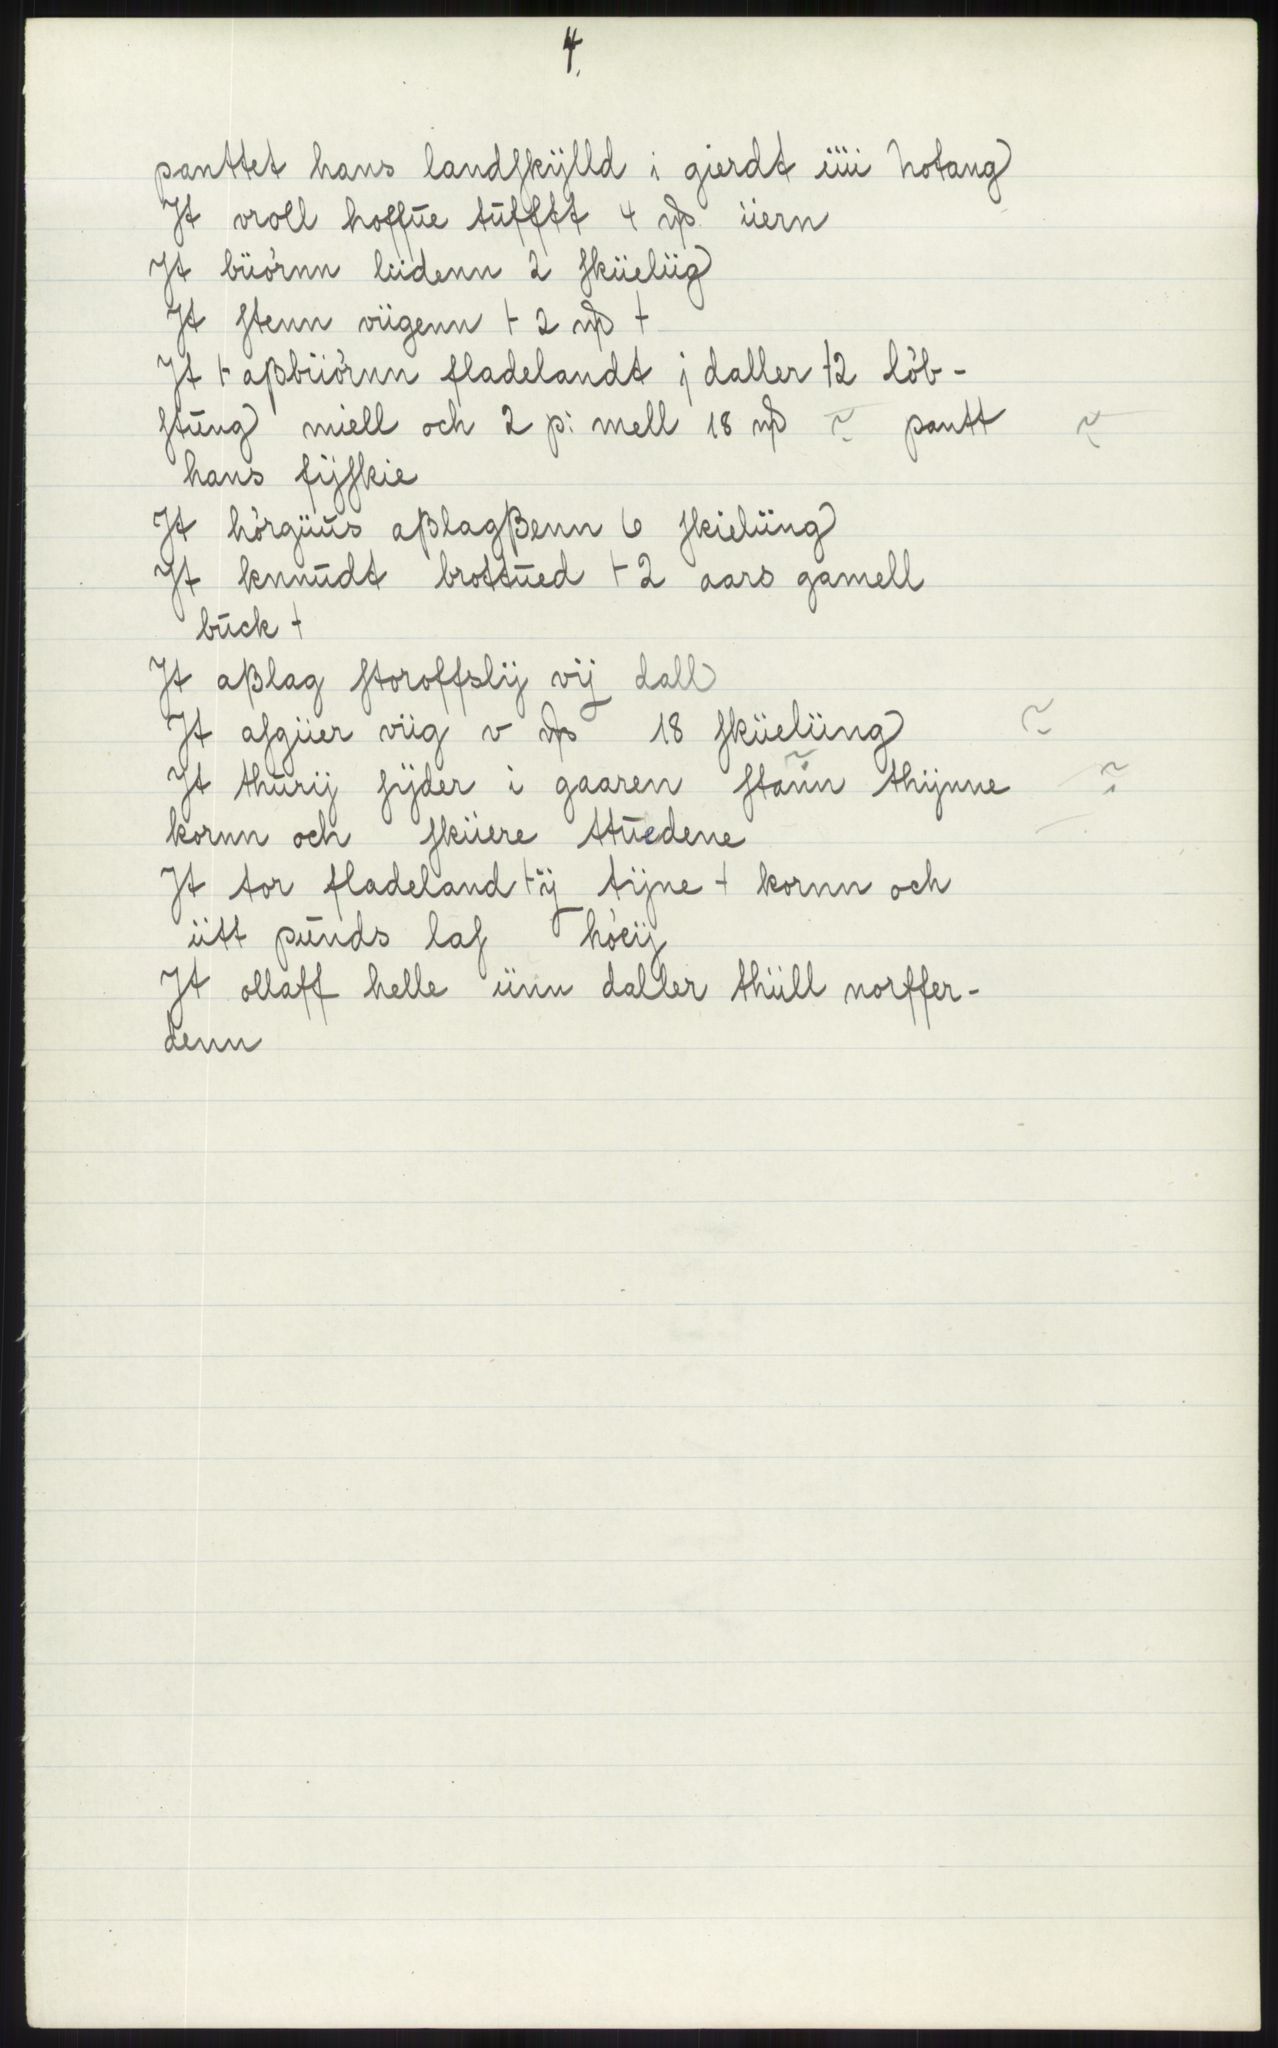 4.
panttet hans landſkÿlld i gierdt iiii hotang
Jt vroll hoffūe tūfftt 4 mß üern
Jt büórnn liidenn 2 ſküeliig
Jt ſtenn viigenn + 2 mß +
Jt + aßbüórnn fladelandt j daller +2 lób-
ſtūng miell och 2 p: mell 18 mß ~ pantt ~
hans fÿſkie
Jt hórgüūs aßlagßenn 6 ſkielüng
Jt knnūdt brottūed + 2 aars gamell
būck +
Jt aßlag ſtoroffslÿ vÿ dall
Jt aſgüer viig v mß 18 ſküelüng ~
Jt thūrÿ ſÿder i gaaren ſtaūn thÿnne ~
kornn och ſküere ttūedene
Jt tor fladeland + ÿ tÿne + kornn och
iitt pūnds laſ hóeÿ
Jt ollaff helle iinn daller thüll norffer-
denn